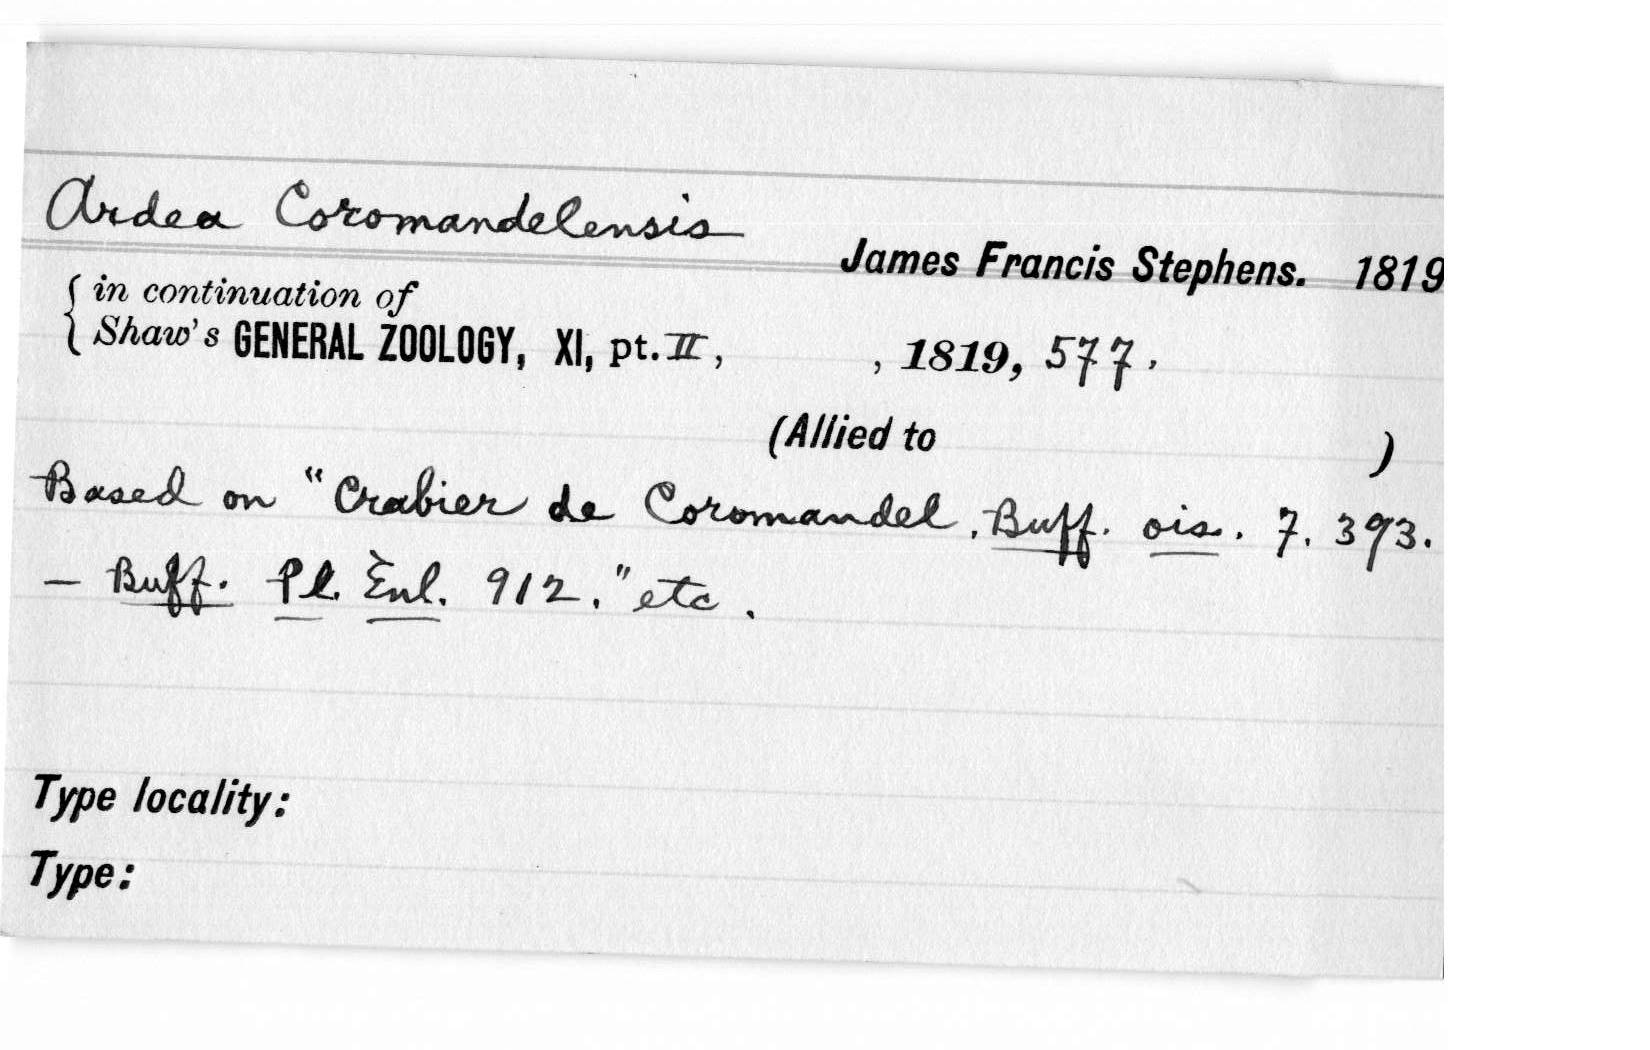 Ardea Coromandelensis
James Francis Stephens. 1819
{ in continuation of
Shaw's GENERAL ZOOLOGY, XI, pt. II, , 1819, 577.
(Allied to )
Based on "Crabier de Coromandel. Buff. ois. 7. 393.
— Buff. Pl. Enl. 912." etc.
Type locality:
Type: